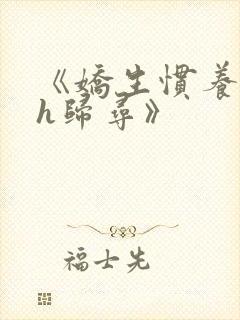 《嬌生慣養
h歸尋》
福士先